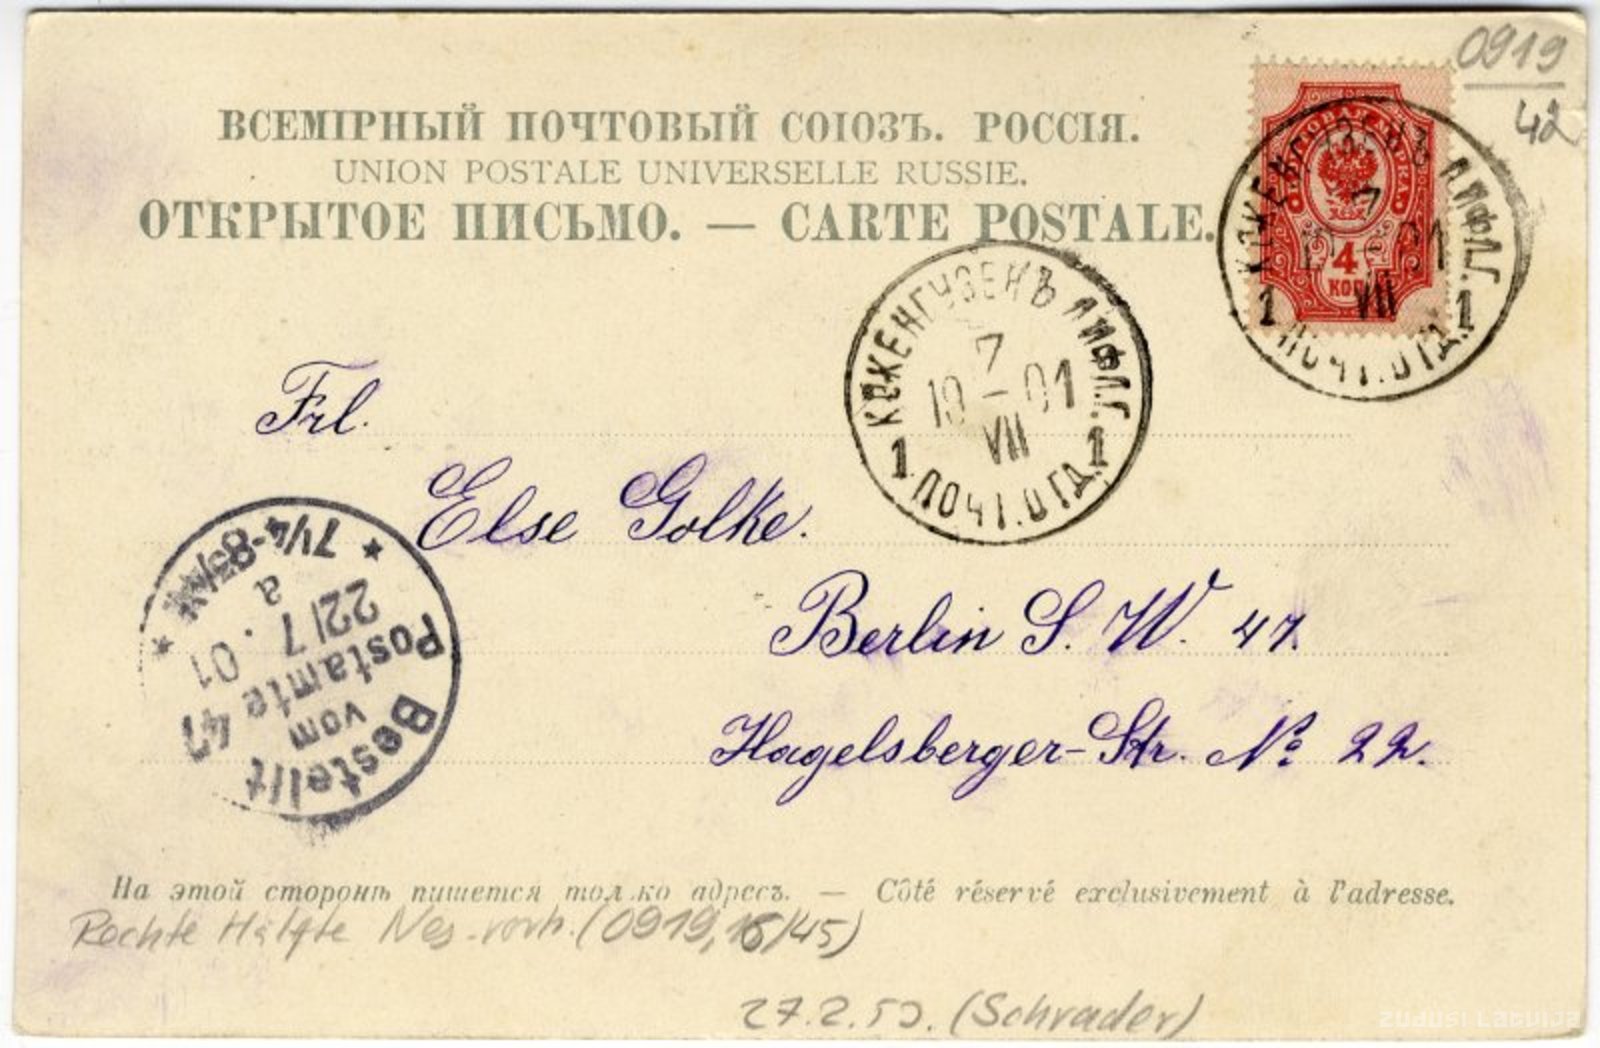 0919
42
ВСЕМІРНЫЙ ПОЧТОВЫЙ СОЮЗЪ. РОССІЯ.
UNION POSTALE UNIVERSELLE RUSSIE.
ОТКРЫТОЕ ПИСЬМО. — CARTE POSTALE.
ПОЧТОВАЯ МАРКА
4
КОП
КОКЕНГУЗЕНЪ ЛИФЛ.Г.
7
19 - 01
VII
1 ПОЧТ.ОТД. 1
КОКЕНГУЗЕНЪ ЛИФЛ.Г.
7
19 - 01
VII
1 ПОЧТ.ОТД. 1
Frl.
Else Golke.
Berlin S. W. 47.
Hagelsberger-Str. No 22.
Bestellt
vom
Postamte 47
22/7. 01
a
7¼-8½N
На этой сторонѣ пишется только адресъ. — Côté réservé exclusivement à l'adresse.
Rechte Hälfte Neg. vorh. (0919, 16/45)
27.2.53. (Schrader)
zudusi Latvija